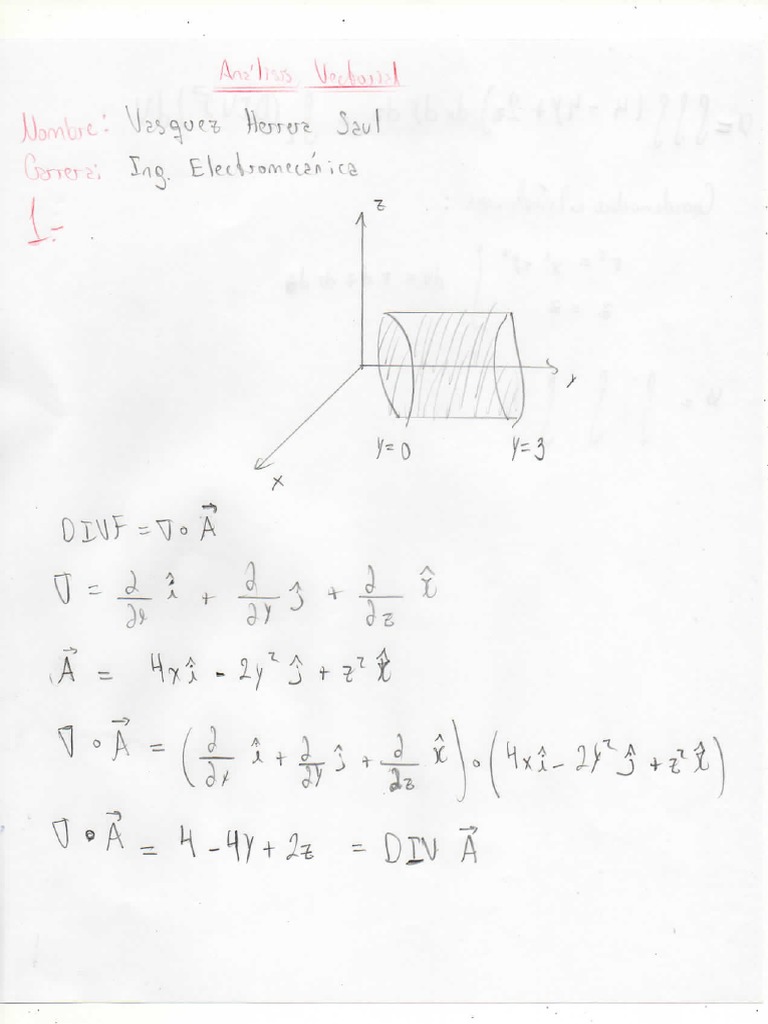 Análisis Vectorial
Nombre: Vasquez Herrera Saul
Carrera: Ing. Electromecánica
1.-
z
y
y=0 y=3
x
DIVF = ∇∘A⃗
∇ = ∂/∂x î + ∂/∂y ĵ + ∂/∂z k̂
A⃗ = 4xî - 2y² ĵ + z² k̂
∇∘A⃗ = (∂/∂x î + ∂/∂y ĵ + ∂/∂z k̂)∘(4xî - 2y² ĵ + z² k̂)
∇•A⃗ = 4 - 4y + 2z = DIV A⃗